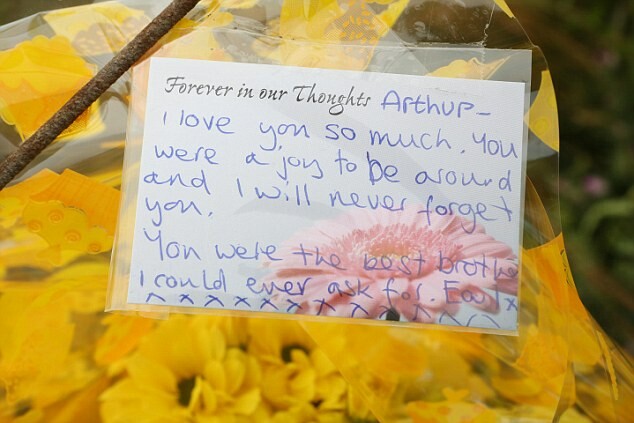 Forever in our Thoughts Arthur-
I love you so much. You
were a joy to be around
and I will never forget
you.
You were the best brothe
I could ever ask for. Earl x
x x x x x x x x x x x x x x